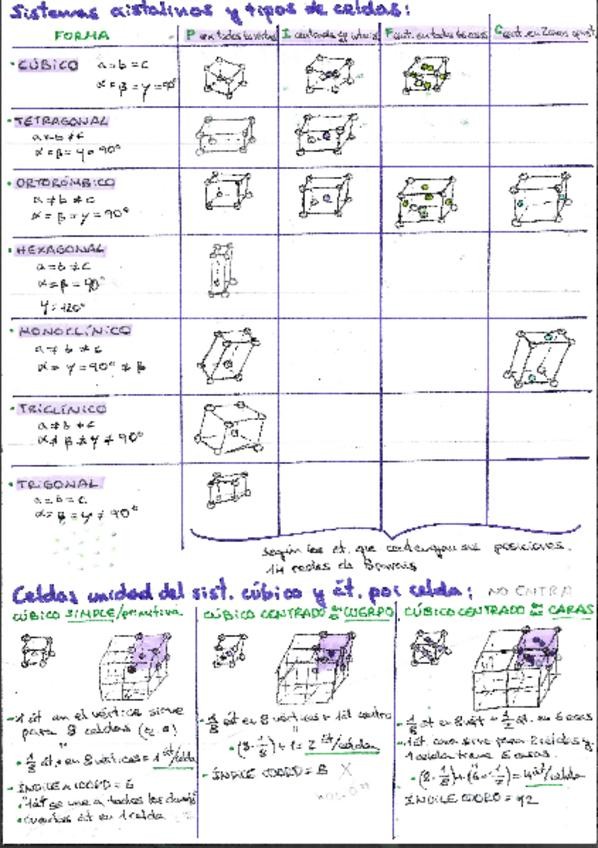 Sistemas cristalinos y tipos de celdas:
FORMA
P en todos los
I centrada
F
C
CÚBICO a = b = c
α = β = γ = 90°
TETRAGONAL
a = b ≠ c
α = β = γ = 90°
ORTORÓMBICO
a ≠ b ≠ c
α = β = γ = 90°
HEXAGONAL
a = b ≠ c
α = β = 90°
γ = 120°
MONOCLÍNICO
a ≠ b ≠ c
α = γ = 90° ≠ β
TRICLÍNICO
a ≠ b ≠ c
α ≠ β ≠ γ ≠ 90°
TRIGONAL
a = b = c
α = β = γ ≠ 90°
según los át. que contengan sus posiciones.
14 redes de Bravais
Celdas unidad del sist. cúbico y át. por celda: NO ENTRA
CÚBICO SIMPLE/primitiva
- 1 át en el vértice sirve
para 8 celdas
1/8 át. en 8 vértices = 1 át/celda
- ÍNDICE COORD = 6
CÚBICO CENTRADO CUERPO
- 1/8 át en 8 vérticas + 1 át centro
(8 · 1/8) + 1 = 2 át/celda
- ÍNDICE COORD = 8 X
CÚBICO CENTRADO CARAS
- 1/8 át en 8 vért + 1/2 át. en 6 caras
- 1 át. cara sirve para 2 celdas y
1 celda tiene 6 caras.
(8 · 1/8) + (6 · 1/2) = 4 át/celda
ÍNDICE COORD = 12